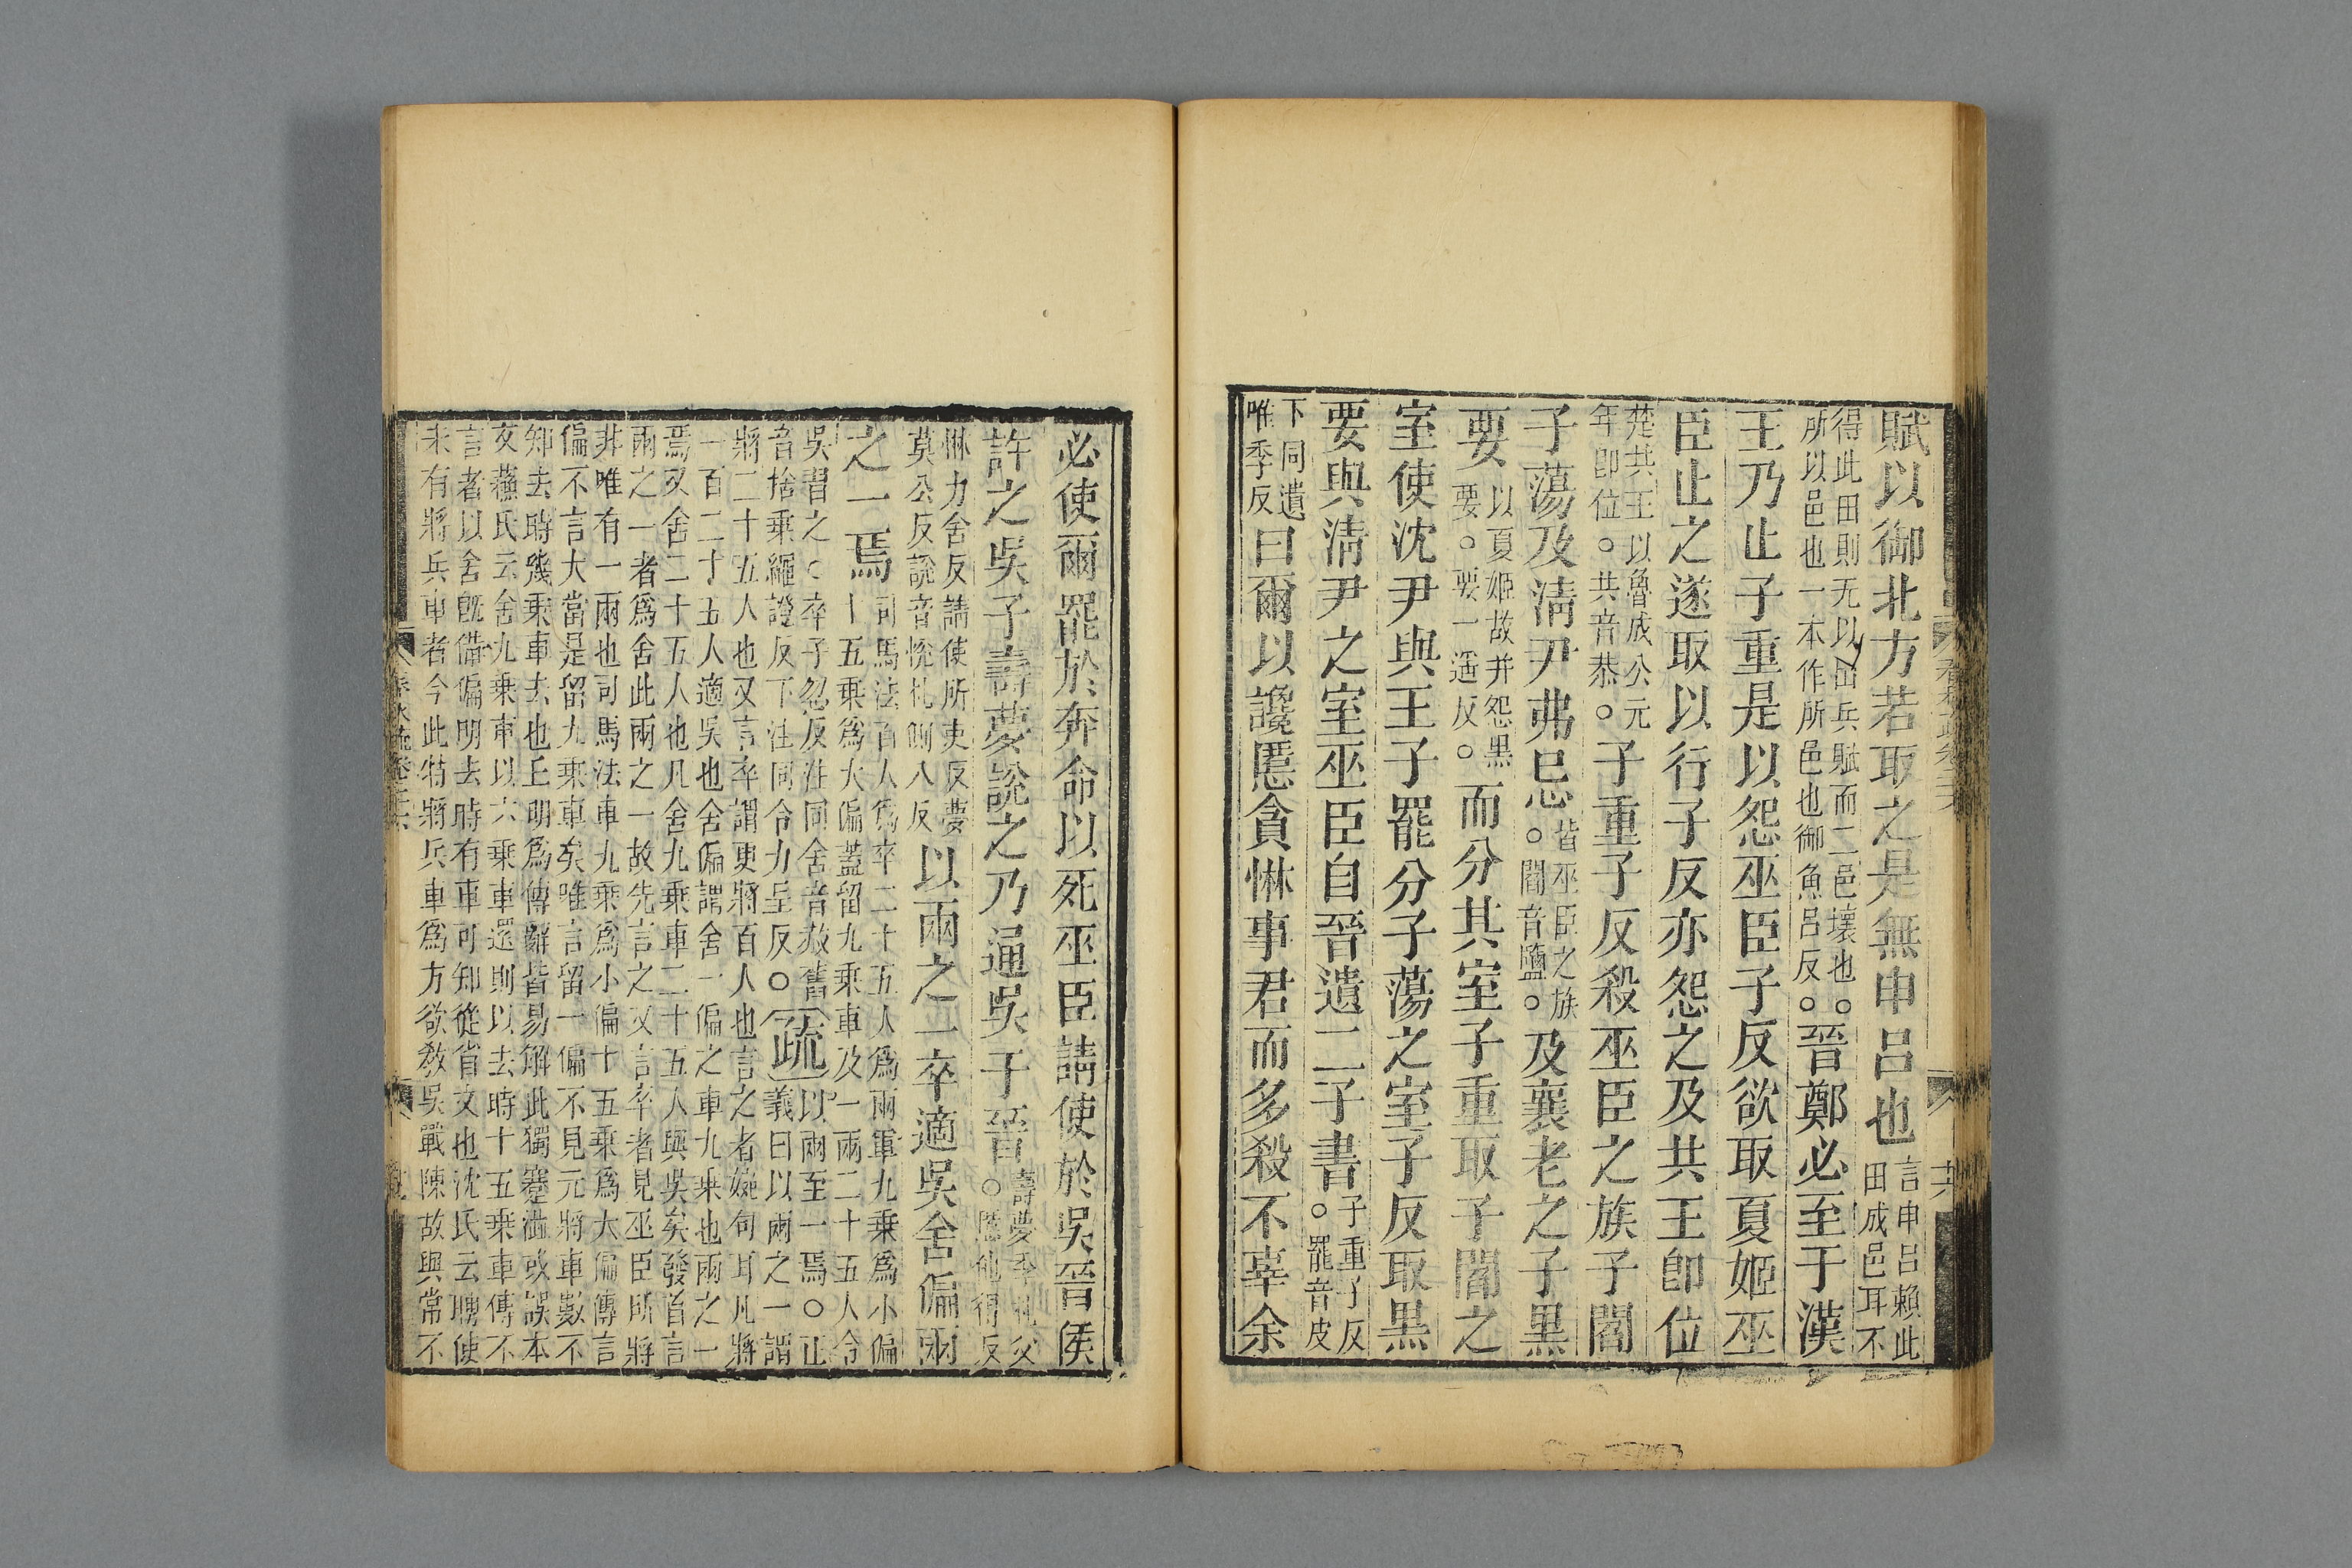 賦以御北方若取之是無申呂也言申呂賴此田成邑耳不
得此田則无以出兵賦而二邑壞也。所以邑也一本作所邑也御魚呂反。晉鄭必至于漢
王乃止子重是以怨巫臣子反欲取夏姬巫
臣止之遂取以行子反亦怨之及共王卽位
楚共王以魯成公元年卽位。共音恭。子重子反殺巫臣之族子閻
子蕩及淸尹弗忌皆巫臣之族。閻音鹽。及襄老之子黑
要以夏姬故并怨黑要。要一遥反。而分其室子重取子閻之
室使沈尹與王子罷分子蕩之室子反取黑
要與淸尹之室巫臣自晉遺二子書子重子反。罷音皮
下同遺唯季反曰爾以讒慝貪惏事君而多殺不辜余
必使爾罷於奔命以死巫臣請使於吳晉侯
許之吳子壽夢說之乃通吳于晉壽夢季札父。慝他得反
惏力舍反請使所吏反夢莫公反說音悅札側八反以兩之一卒適吳舍偏兩
之一焉司馬法百人爲卒二十五人爲兩軍九乘爲小偏
十五乘爲大偏蓋留九乘車及一兩二十五人令
吳習之。卒子忽反注同舍音赦舊
音捨乘繩證反下注同令力呈反。疏以兩至一焉。正
義曰以兩之一謂
將二十五人也又言卒謂更將百人也言之者婉句耳凡將
一百二十五人適吳也舍偏謂舍一偏之車九乘也兩之一
焉又舍二十五人也凡舍九乘車二十五人與吳矣發首言
兩之一者爲舍此兩之一故先言之又言卒者見巫臣所將
非唯有一兩也司馬法車九乘爲小偏十五乘爲大偏傳言
偏不言大當是留九乘車矣唯言留一偏不見元將車數不
知去時幾乘車去也丘明爲傳辭皆易解此獨蹇澁或誤本
文蘇氏云舍九乘車以六乘車還則以去時十五乘車傳不
言者以舍旣備偏明去時有車可知從省文也沈氏云聘使
未有將兵車者今此特將兵車爲方欲敎吳戰陳故與常不